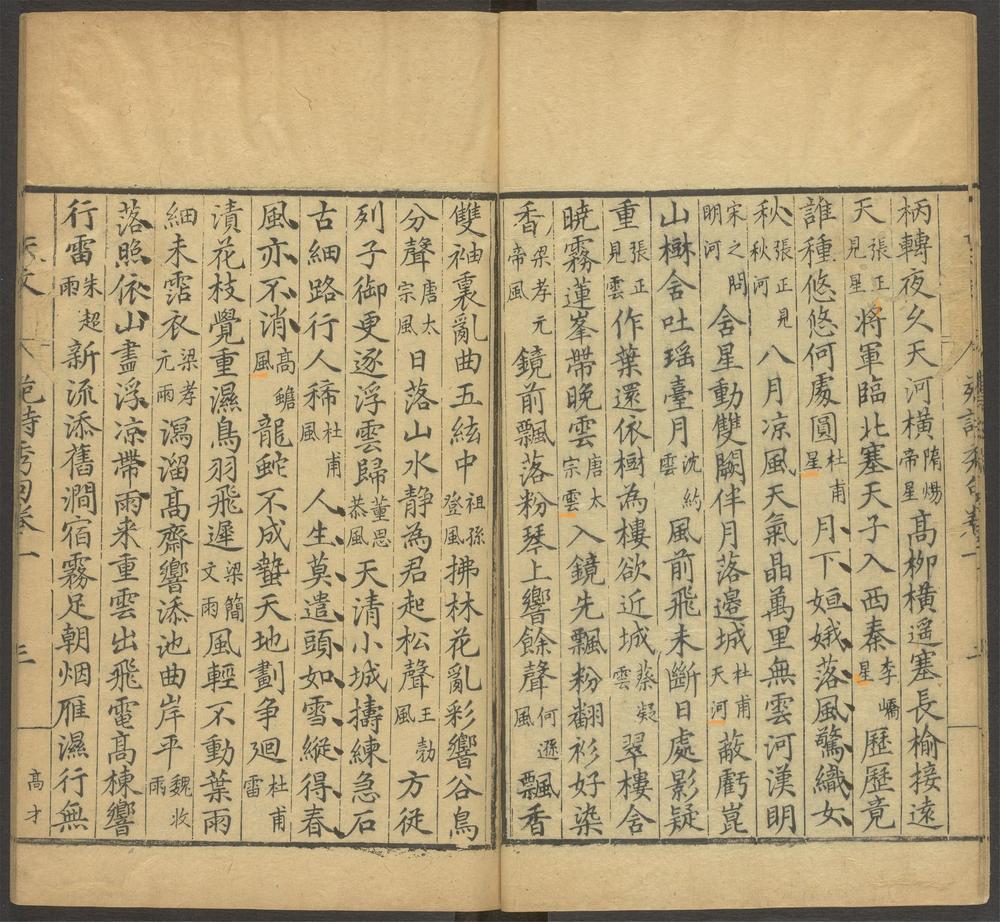 柄轉夜久天河橫隋煬帝星高柳橫遥塞長榆接遠
天張正見星將軍臨北塞天子入西秦李嶠星歷歷竟
誰種悠悠何處圓杜甫星月下姮娥落風驚織女
秋張正見秋河八月凉風天氣晶萬里無雲河漢明
宋之問明河含星動雙闕伴月落邊城杜甫天河蔽虧崑
山樹含吐瑶臺月沈約雲風前飛未斷日處影疑
重張正見雲作葉還依樹為樓欲近城蔡凝雲翠樓含
曉霧蓮峯帶晚雲唐太宗雲入鏡先飄粉翻衫好染
香梁孝元帝風鏡前飄落粉琴上響餘聲何遜風飄香
雙袖裏亂曲五絃中祖孫登風拂林花亂彩響谷鳥
分聲唐太宗風日落山水静為君起松聲王勃風方從
列子御更逐浮雲歸董思恭風天清小城擣練急石
古細路行人稀杜甫風人生莫遣頭如雪縱得春
風亦不消高蟾風龍蛇不成蟄天地劃争廻杜甫雷
漬花枝覺重濕鳥羽飛遲梁簡文雨風輕不動葉雨
細未霑衣梁孝元雨瀉溜高齋響添池曲岸平魏收雨
落照依山盡浮凉帶雨来重雲出飛電高棟響
行雷朱超雨新流添舊澗宿霧足朝烟雁濕行無
天文
三
高才